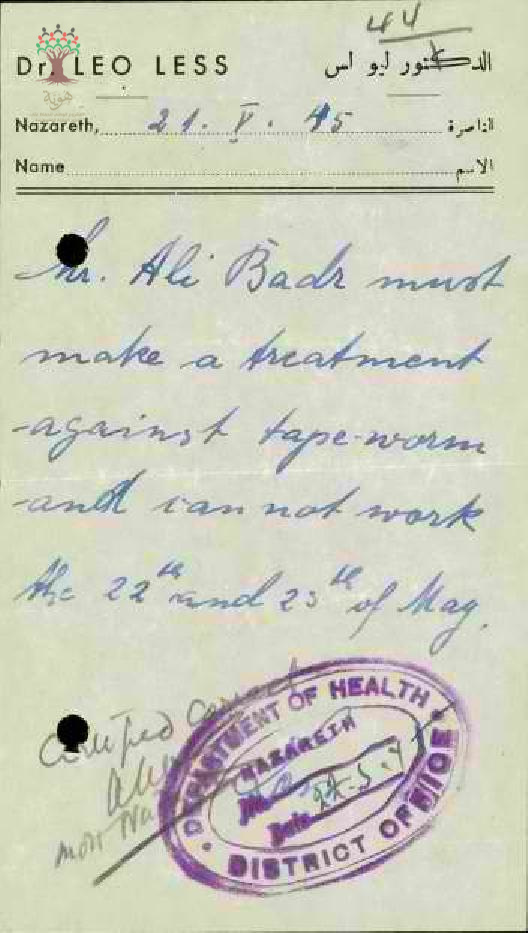 44
Dr. LEO LESS الدكتور ليو لس
هوية
Nazareth, 21. V. 45 الناصرة
Name الاسم
Mr. Ali Badr must
make a treatment
against tape-worm
and can not work
the 22th and 23th of May.
Certified correct
DEPARTMENT OF HEALTH
NAZARETH
No.
Date
DISTRICT OFFICE